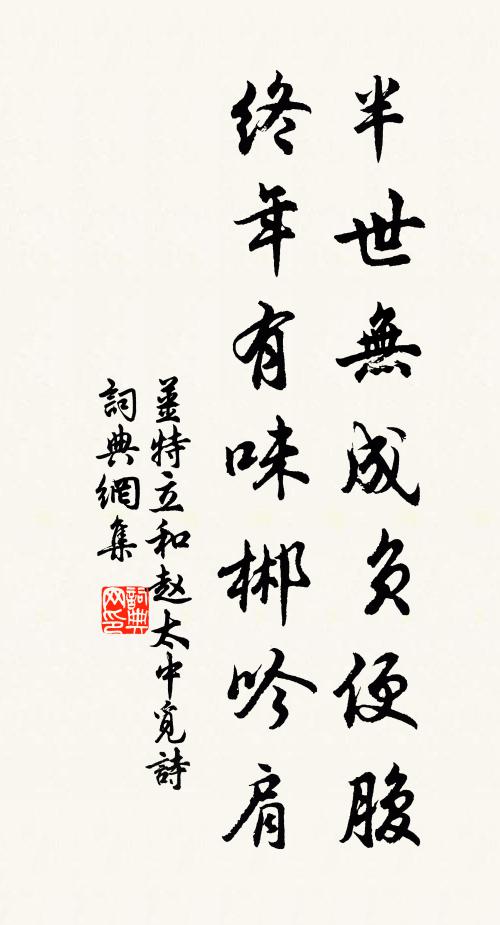 半世無成负便腹
終年有味郴吟肩
薑特立和赵太中覓詩
詞典網集
詞典网印